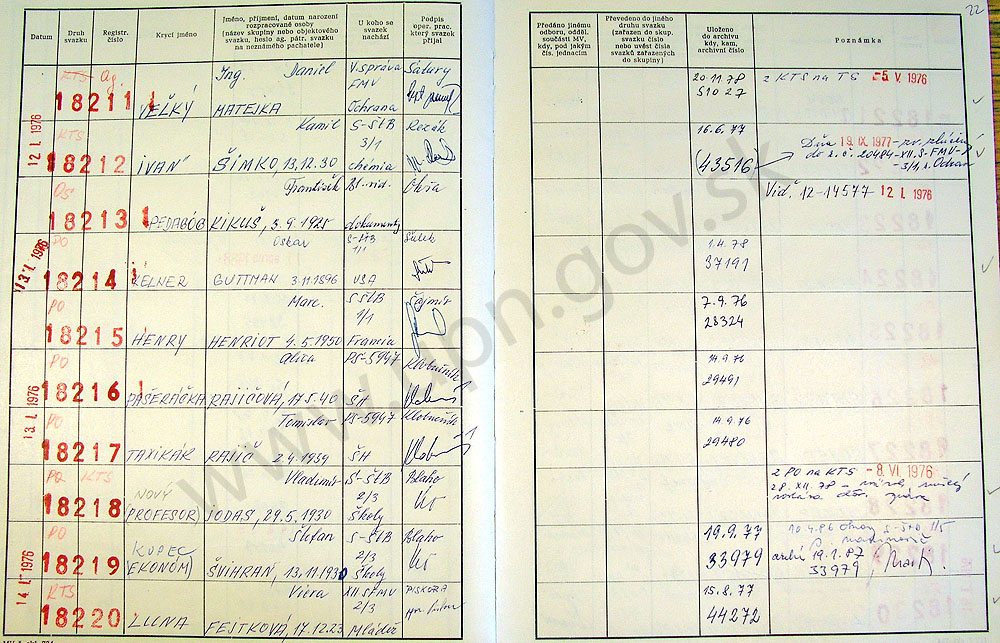 22
Datum
Druh svazku
Registr. číslo
Krycí jméno
Jméno, příjmení, datum narození
rozpracované osoby
(název skupiny nebo objektového
svazku, heslo ag. pátr. svazku
na neznámého pachatele)
U koho se
svazek
nachází
Podpis
oper. prac.
který svazek
přijal
Předáno jinému
odboru, odděl.
součásti MV,
kdy, pod jakým
čís. jednacím
Převedeno do jiného
druhu svazku
(zařazen do skup.
svazku číslo
nebo uvést čísla
svazků zařazených
do skupiny)
Uloženo
do archivu
kdy, kam,
archivní číslo
Poznámka
KTS Ag. Ing. Daniel V. správa
FMV
18211 VEĽKÝ MATEJKA Ochrana
20.11.78
51027
z KTS na TS -5. V. 1976
12. I. 1976
KTS Kamil S-ŠtB Rezák
3/1
18212 IVAN ŠIMKO, 13.12.30 chémia
16.6.77
(43516)
Dňa 19. IX. 1977
do z. č. 20484-XII. S-FMV-
3/1
OS František
18213 PEDAGÓG KIKUŠ, 3.9.1925 dokumenty
Viď. 12-14577- 12. I. 1976
13. I. 1976
PO Oskar S-ŠtB
1/1
18214 KELNER GUTTMAN 3.11.1896 USA
1.4.78
37191
PO Marc. S ŠtB
1/1
18215 HENRY HENRIOT 4.5.1950 Francia
7.9.76
28324
PO Alica PS-5947 Klobučník
18216 PAŠERÁČKA RAJIČOVÁ, 17.5.40 ŠH
14.9.76
29491
13. I. 1976
PO Tomislav PS-5947 Klobučník
18217 TAXIKÁR RAJIČ 2.4.1939 ŠH
14.9.76
29480
PO KTS Vladimír S-ŠtB Blaho
NOVÝ 2/3
18218 PROFESOR) JODAS, 29.5.1930 Školy
z PO na KTS -8. VI. 1976
28. XII. 78
PO Štefan S-ŠtB Blaho
KUPEC 2/3
18219 (EKONÓM) ŠVIHRAN, 13.11.1930 Školy
19.9.77
33979
10.4.86
19.1.87
33979
14. I. 1976
KTS Viera XII SFMV PISKORA
2/3
18220 LUNA FEJTKOVÁ, 17.12.23 Mládež
15.8.77
44272
www.upn.gov.sk